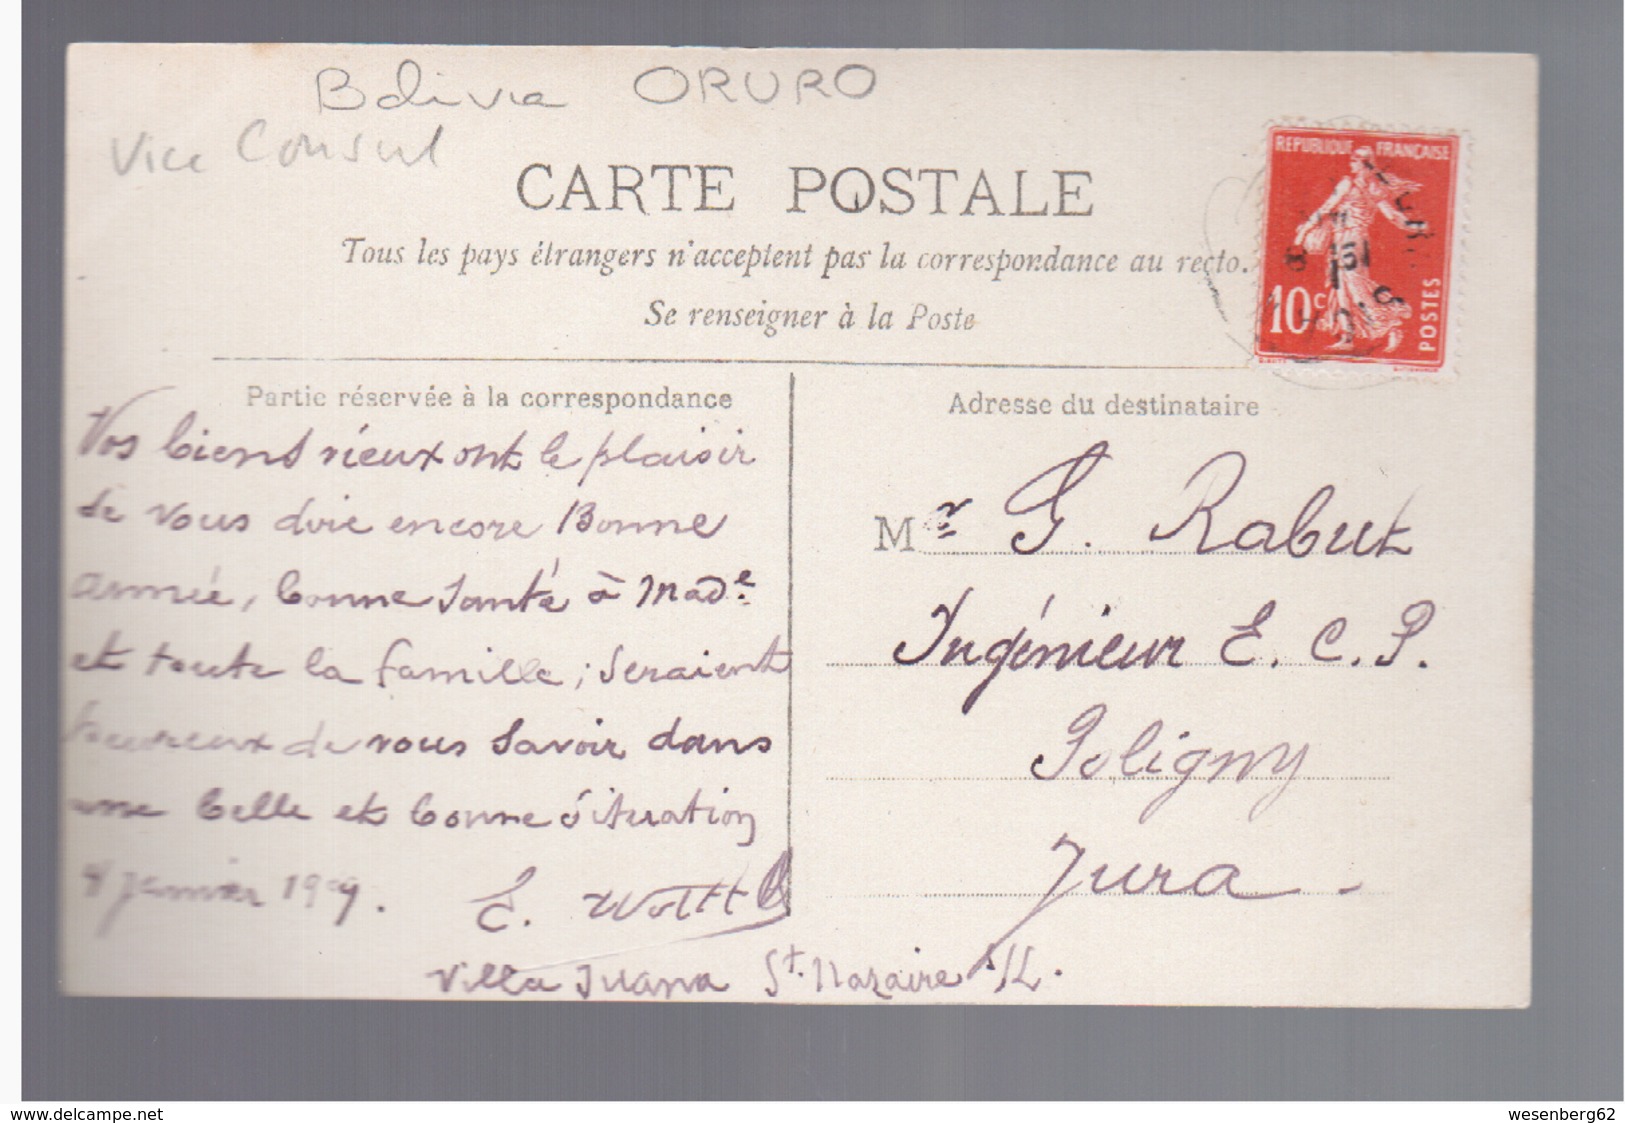 Bolivia ORURO
Vice Consul
CARTE POSTALE
Tous les pays étrangers n'acceptent pas la correspondance au recto.
Se renseigner à la Poste
REPUBLIQUE FRANÇAISE
10c
POSTES
Partie réservée à la correspondance
Vos biens vieux ont le plaisir
de vous dire encore Bonne
année, bonne santé à Made
et toute la famille; seraient
heureux de vous savoir dans
une belle et bonne situation
Janvier 1909.
E.
Villa Juana St. Nazaire s/L.
Adresse du destinataire
Mr G. Rabut
Ingénieur E. C. P.
Poligny
Jura
www.delcampe.net
wesenberg62